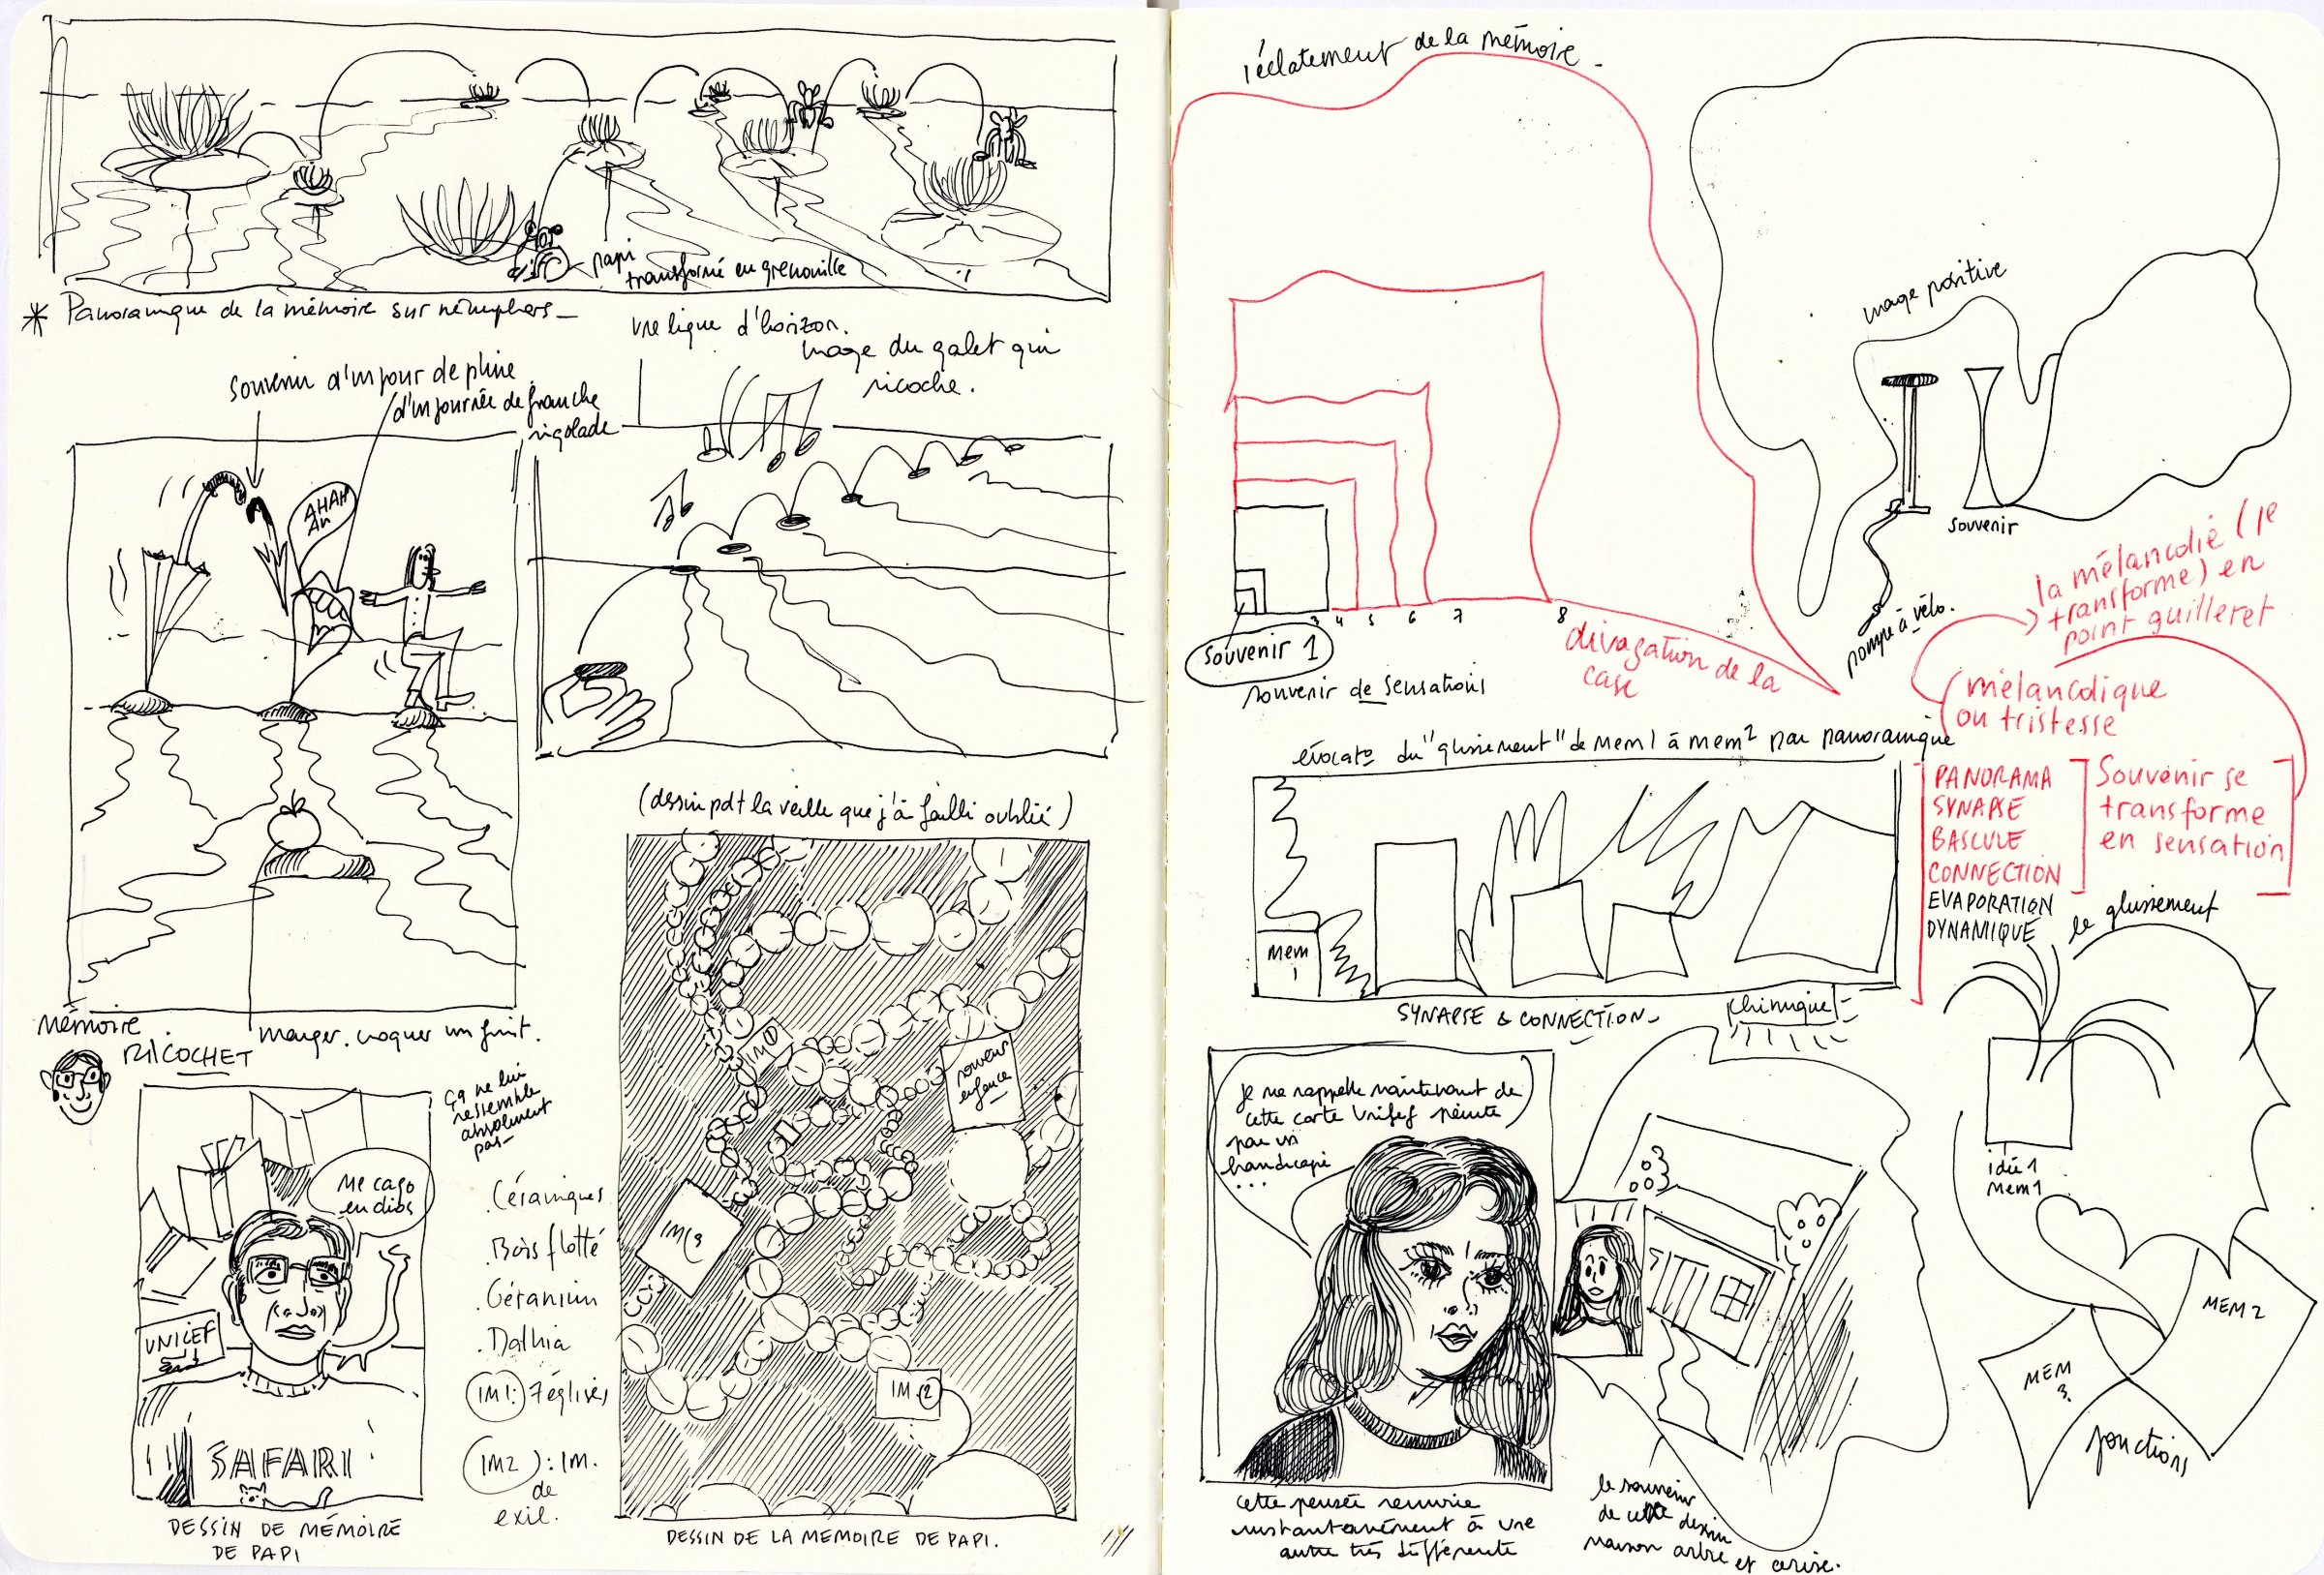 papi
transformé en grenouille
* Panoramique de la mémoire sur nénuphars_
une ligne d'horizon.
image du galet qui
ricoche.
souvenir d'un jour de pluie
d'un journée de franche
rigolade
AHAH
AH
Mémoire
RICOCHET
manger. croquer un fruit.
(dessin pdt la veille que j'ai failli oublié)
IM 1
souvenir
enfance
IM 3
IM 2
DESSIN DE LA MEMOIRE DE PAPI.
ça ne lui
ressemble
absolument
pas_
Me cago
en dios
UNICEF
SAFARI
DESSIN DE MÉMOIRE
DE PAPI
. Céramiques
. Bois flotté
. Géranium
. Dalhia
IM1: 7 églises
IM2 : IM.
de
exil.
l'éclatement de la mémoire_
image positive
souvenir
pompe à vélo.
3 4 5 6 7 8
souvenir 1
souvenir de sensations
divagation de la
case
la mélancolie (je
transforme) en
point guilleret
mélancolique
ou tristesse
évocato du "glissement" de mem 1 à mem 2 par panoramique
mem
1
SYNAPSE & CONNECTION_
chimique
PANORAMA
SYNAPSE
BASCULE
CONNECTION
EVAPORATION
DYNAMIQUE
Souvenir se
transforme
en sensation
le glissement
idée 1
mem 1
MEM 2
MEM
3
jonctions
je me rappelle maintenant de
cette carte Unicef peinte
par un
handicapé
...
cette pensée renvoie
instantanément à une
autre très différente
le souvenir
de cette dessin
maison arbre et cerise.